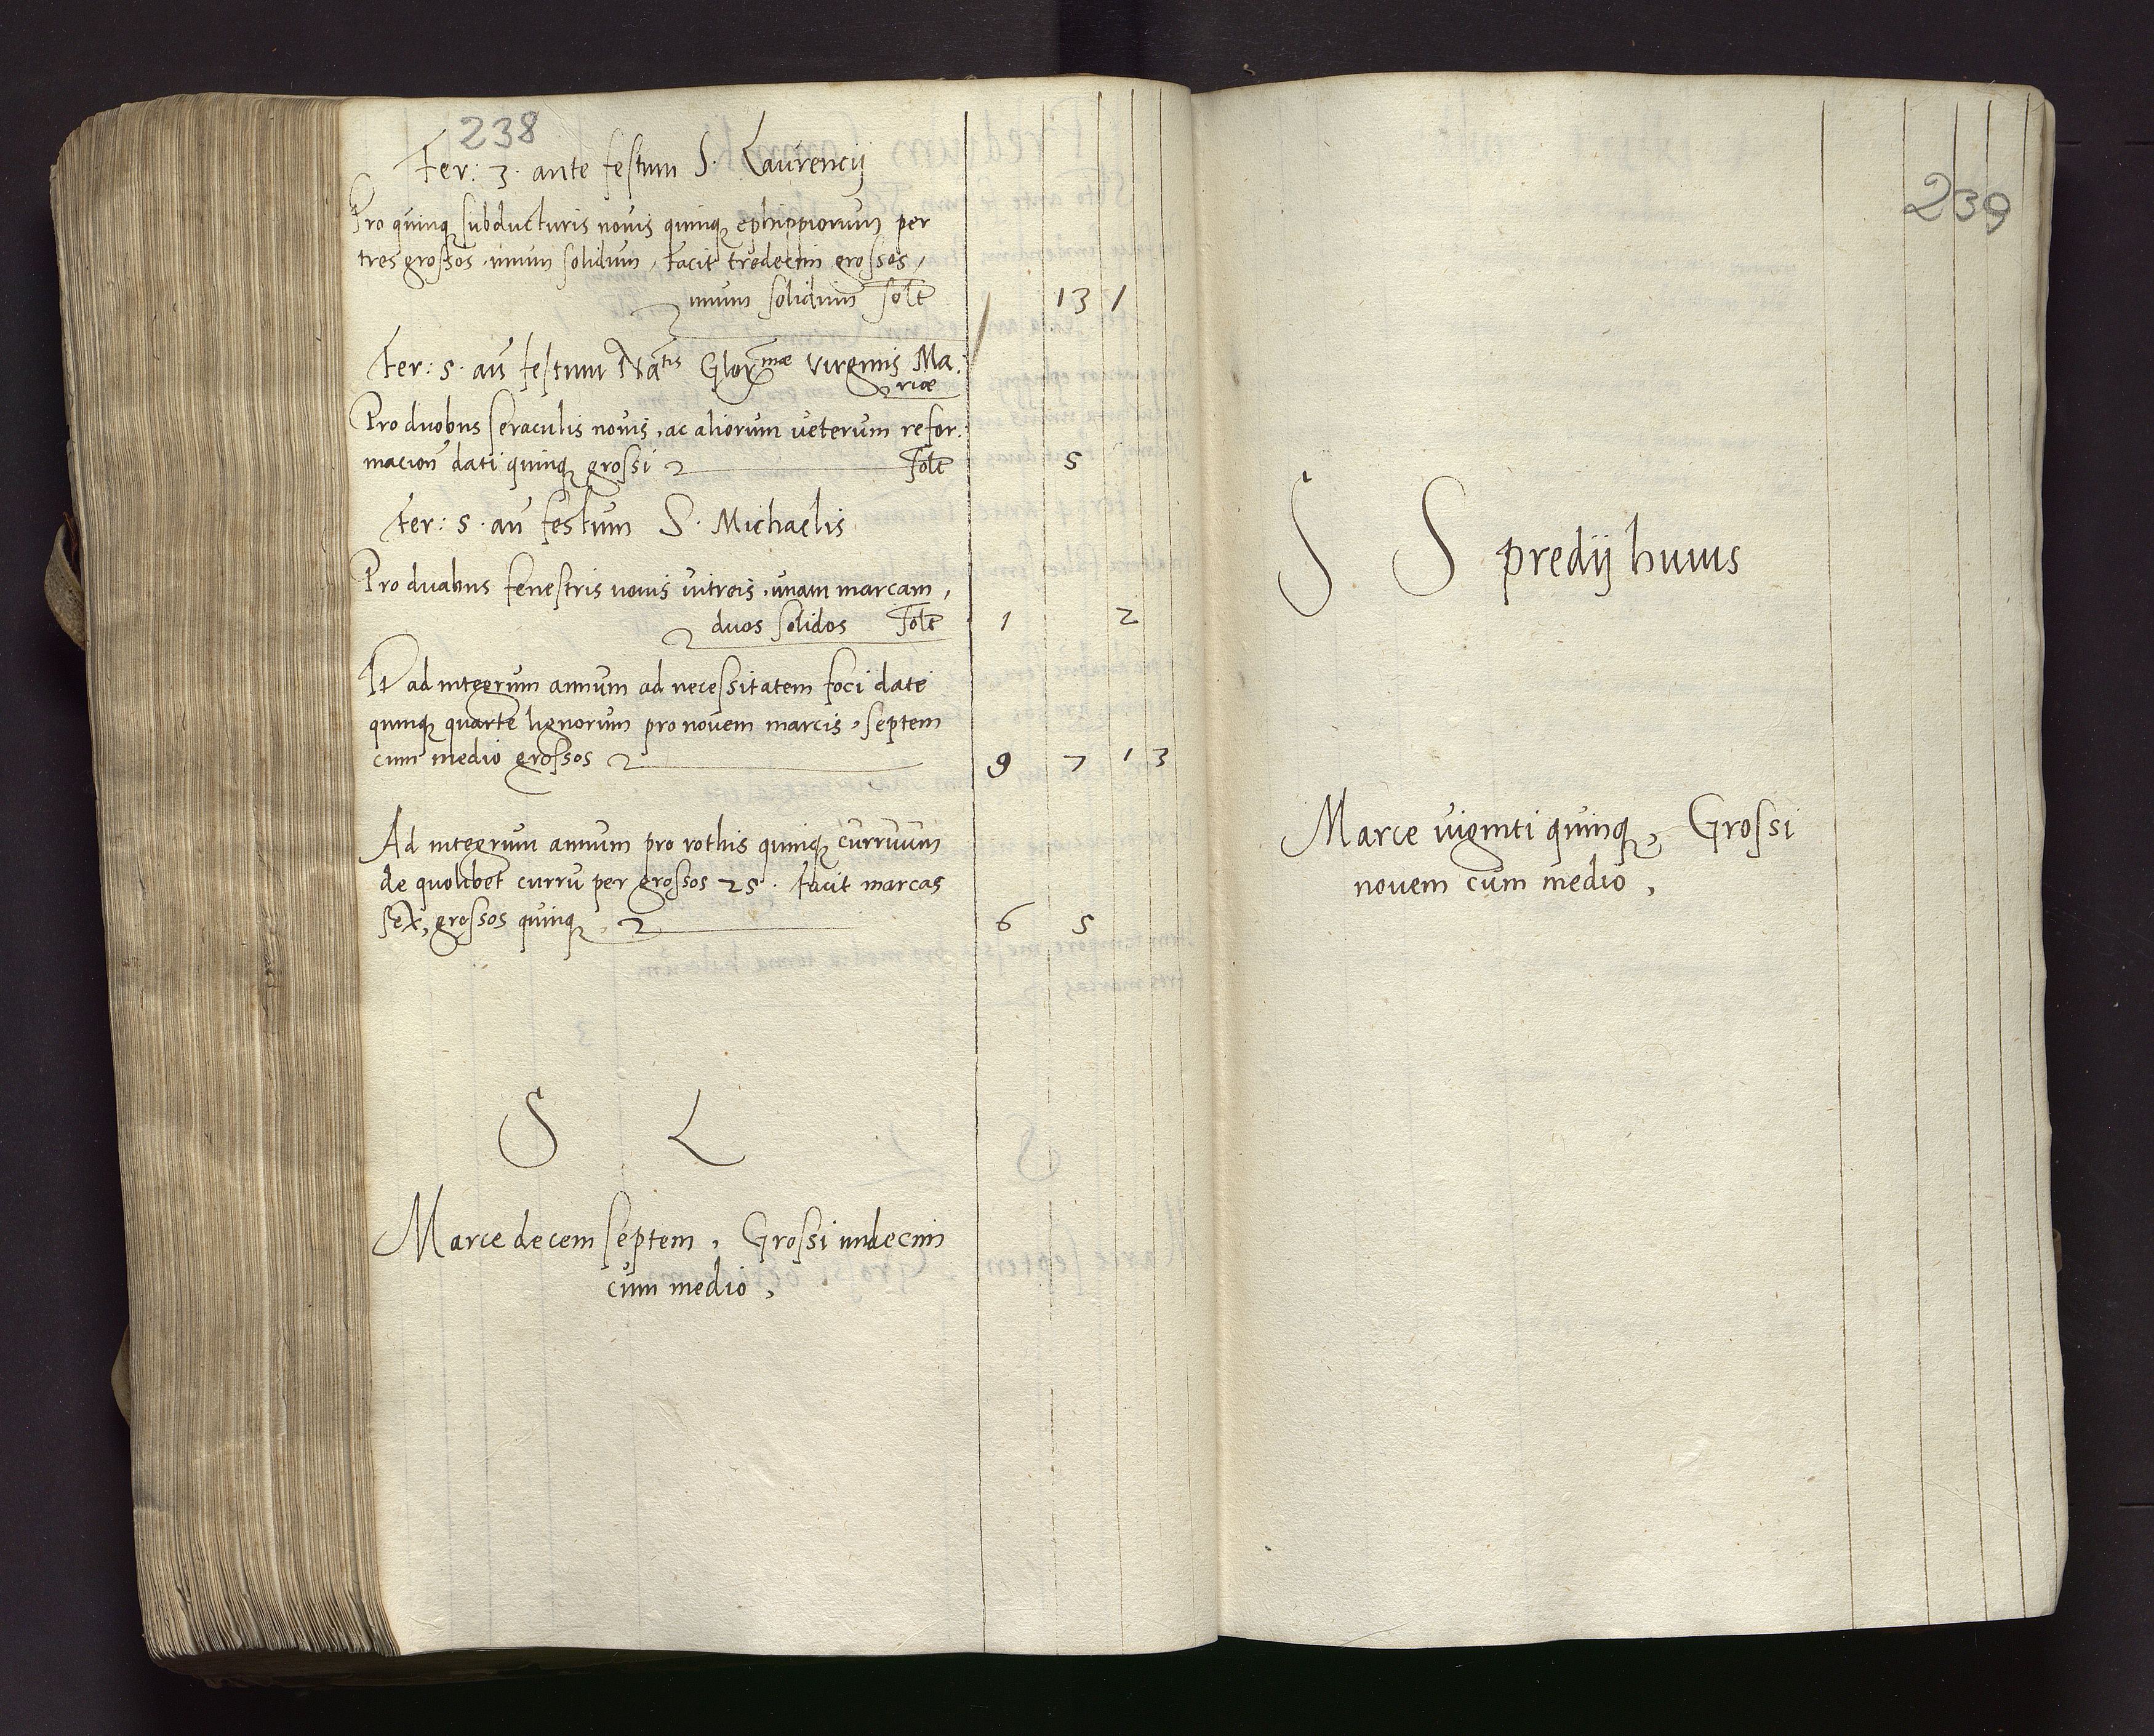 238
Fer: 3. ante festum S. Laurencij
Pro quinq subducturis novis quinq ephippiorum per
tres grossos, unum solidum, facit tredecim grossos,
unum solidum Solt 13 1
Fer: 5. an festum Natis Glormæ Virginis Ma:
riæ
Pro duobus seraculis novis, ac aliorum veterum refor:
macion dati quinq grossi Solt 5
Fer: 5. an festum S. Michaelis
Pro duabus fenestris novis vitreis, unam marcam,
duos solidos Solt 1 2
It ad integrum annum ad necessitatem foci date
quinq quarte lignorum pro novem marcis, septem
cum medio grossos 9 7 1 3
Ad integrum annum pro rothis quinq curruum
de quolibet curru per grossos 25. facit marcas
sex, grossos quinq 6 5
S L
Marce decem septem, Grossi undecim
cum medio,
239
S S predij huius
Marce viginti quinq, Grossi
novem cum medio,